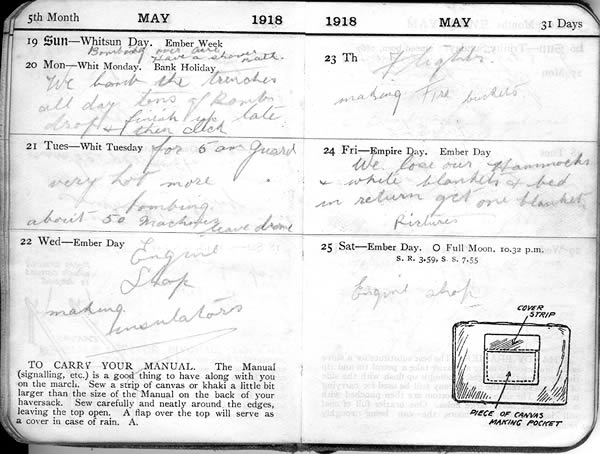 5th Month MAY 1918
19 Sun—Whitsun Day. Ember Week
Bombing over aire
20 Mon—Whit Monday. Bank Holiday
Have a shower bath.
We bomb the trenches
all day tens of bombs
drop & finish up late
then click
21 Tues—Whit Tuesday for 5 am Guard
very hot more
bombing
about 50 Machines leave drome
22 Wed—Ember Day
Engine
Shop
making
insulators
TO CARRY YOUR MANUAL. The Manual
(signalling, etc.) is a good thing to have along with you
on the march. Sew a strip of canvas or khaki a little bit
larger than the size of the Manual on the back of your
haversack. Sew carefully and neatly around the edges,
leaving the top open. A flap over the top will serve as
a cover in case of rain. A.
1918 MAY 31 Days
23 Th
Flights
making Fire buckets
24 Fri—Empire Day. Ember Day
We lose our Hammocks
& white blankets & bed
in return get one blanket
Pictures
25 Sat—Ember Day. O Full Moon. 10.32 p.m.
S. R. 3.59, S. S. 7.55
Engine shop
COVER
STRIP
PIECE OF CANVAS
MAKING POCKET